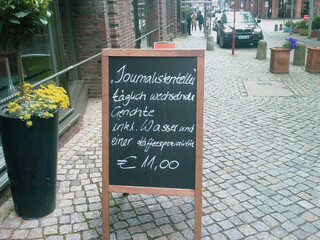 „Journalistenteller"
täglich wechselnde
Gerichte
inkl. Wasser und
einer Kaffeespezialität
€ 11,00